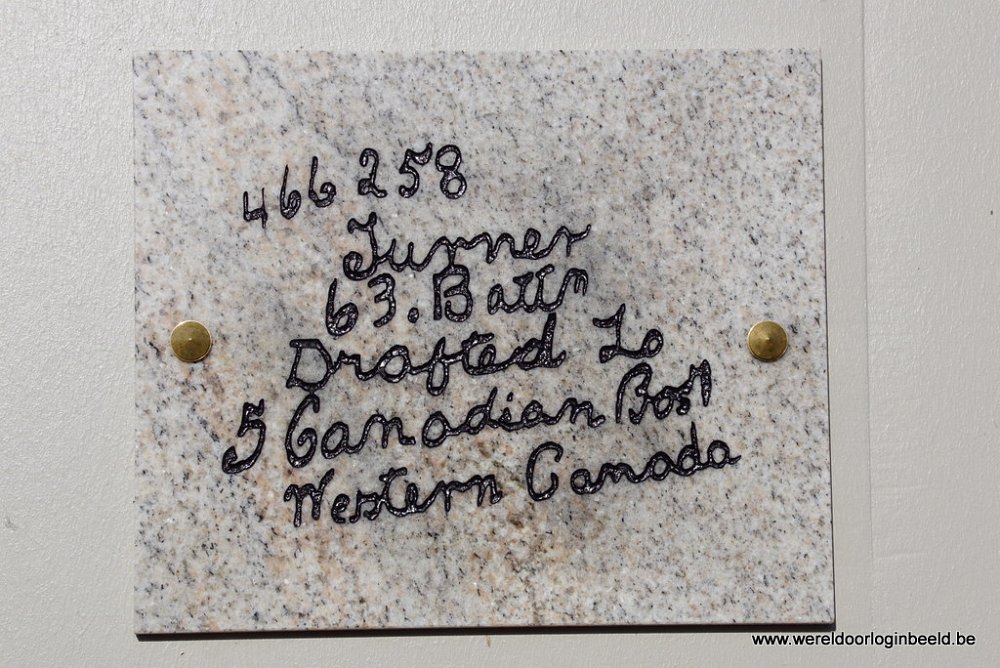 466 258
Turner
63. Battn
Drafted To
5 Canadian Bost
Western Canada
www.wereldoorloginbeeld.be